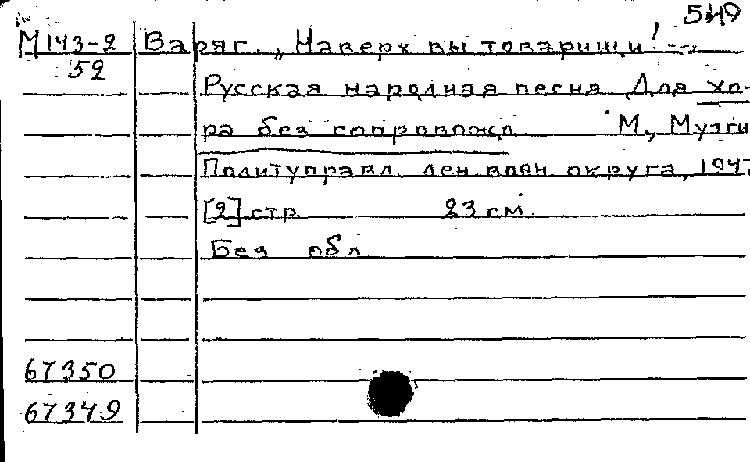 549
М143-2 Варяг. „Наверх вы товарищи!
52
Русская народная песня Для хо-
ра без сопровожд М., Музги
Политуправл. Лен. воен. округа, 194
[2] стр 23 см.
Без обл
67350
67349